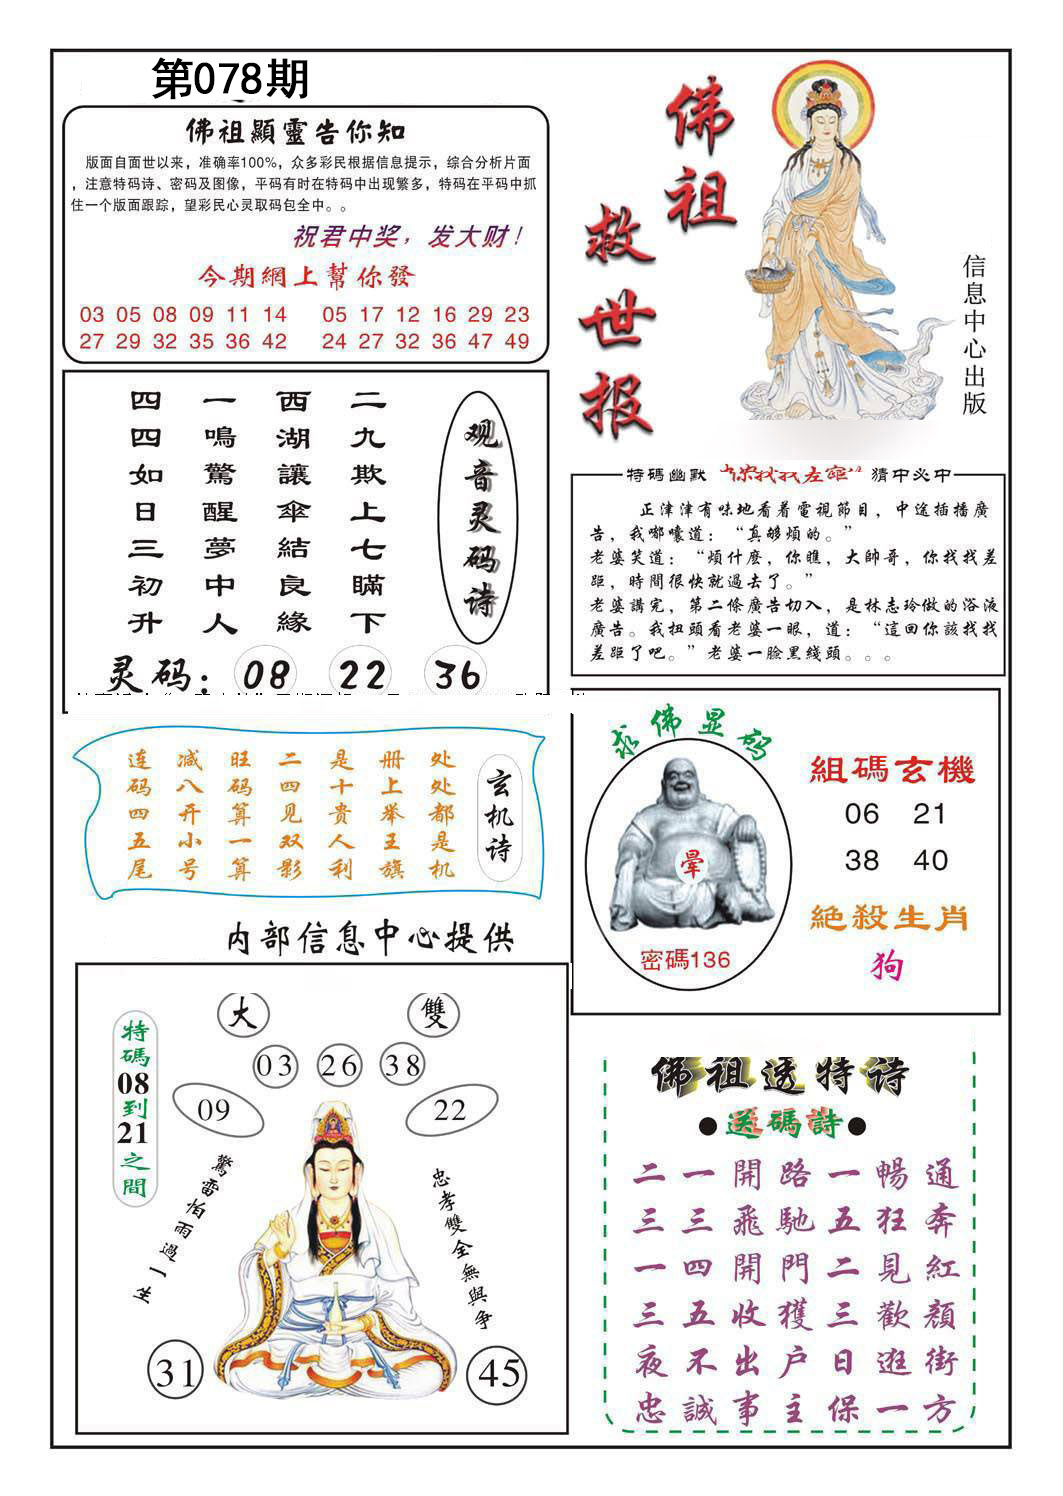 第078期
佛祖顯靈告你知
版面自面世以来，准确率100%，众多彩民根据信息提示，综合分析片面
，注意特码诗、密码及图像，平码有时在特码中出现繁多，特码在平码中抓
住一个版面跟踪，望彩民心灵取码包全中。。
祝君中奖，发大财！
今期網上幫你發
03 05 08 09 11 14 05 17 12 16 29 23
27 29 32 35 36 42 24 27 32 36 47 49
佛祖
救世报
信息中心出版
观音灵码诗
二九欺上七瞞下
西湖讓傘結良緣
一鳴驚醒夢中人
四四如日三初升
灵码：08 22 36
特碼幽默 “你找找差距” 猜中必中
正津津有味地看着電視節目，中途插播廣
告，我嘟囔道：“真够煩的。”
老婆笑道：“煩什麽，你瞧，大帥哥，你找找差
距，時間很快就過去了。”
老婆講完，第二條廣告切入，是林志玲做的浴液
廣告。我扭頭看老婆一眼，道：“這回你該找找
差距了吧。”老婆一臉黑綫頭。。。
玄机诗
处处都是机
册上举王旗
是十贵人利
二四见双影
旺码算一算
减八开小号
连码四五尾
求佛显码
暈
密碼136
組碼玄機
06 21
38 40
絕殺生肖
狗
内部信息中心提供
特碼08到21之間
大 雙
03 26 38
09 22
驚雷怕雨過一生
忠孝雙全無與爭
31 45
佛祖透特诗
●送碼詩●
二一開路一暢通
三三飛馳五狂奔
一四開門二見紅
三五收獲三歡顏
夜不出户日逛街
忠誠事主保一方